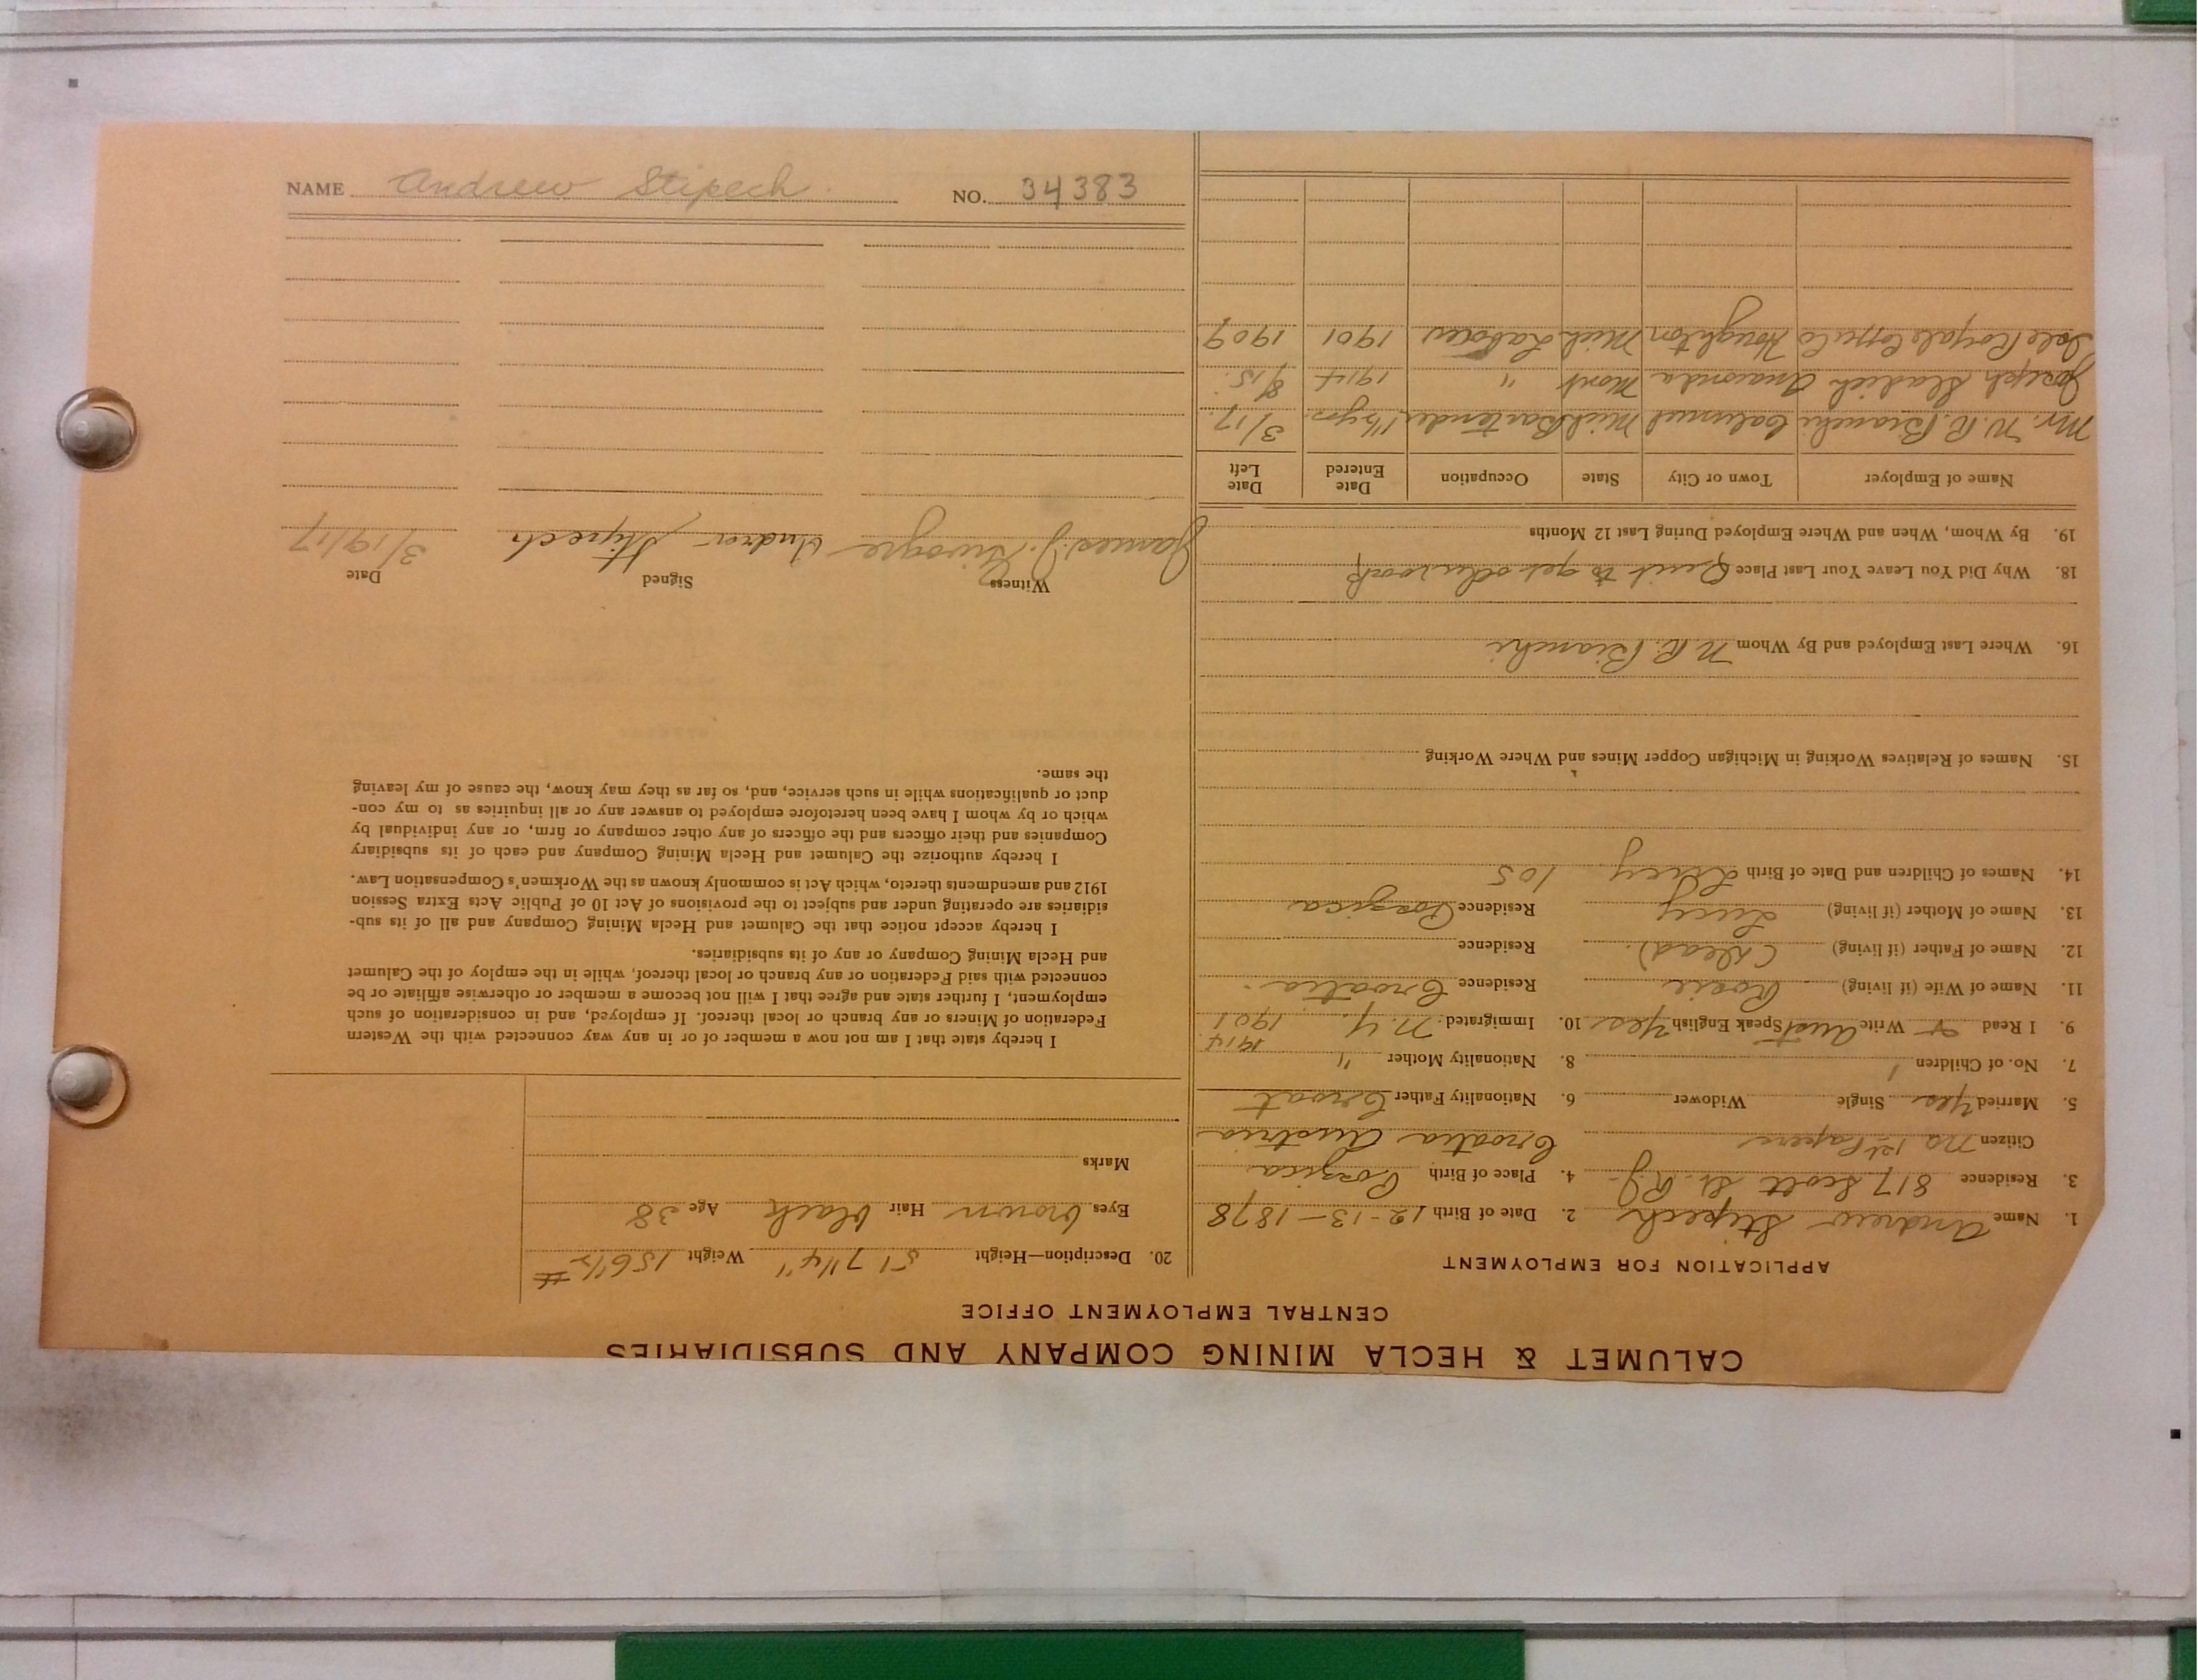 CALUMET & HECLA MINING COMPANY AND SUBSIDIARIES
CENTRAL EMPLOYMENT OFFICE
APPLICATION FOR EMPLOYMENT
1. Name Andrew Stipech 2. Date of Birth 12-13-1878
3. Residence 817 Scott St. R.J. 4. Place of Birth
Citizen No 1st Papers Croatia Austria
5. Married Yes Single Widower 6. Nationality Father Croat
7. No. of Children 1 8. Nationality Mother "
1914
9. I Read & Write Aust Speak English Yes 10. Immigrated N.Y. 1901
11. Name of Wife (if living) Rosie Residence Croatia
12. Name of Father (if living) (Dead) Residence
13. Name of Mother (if living) Lucy Residence
14. Names of Children and Date of Birth Lucy 10 5
15. Names of Relatives Working in Michigan Copper Mines and Where Working
16. Where Last Employed and By Whom N.R. Bianchi
18. Why Did You Leave Your Last Place Quit to get other work
19. By Whom, When and Where Employed During Last 12 Months
Name of Employer Town or City State Occupation Date Entered Date Left
Mr. N. R. Bianchi Calumet Mich Bartender 1½ yrs. 3/17.
Joseph Anaconda Mont " 1914 8/15.
Isle Royale Copper Co Houghton Mich Laborer 1901 1909
20. Description—Height 5' 7¼" Weight 156½ #
Eyes brown Hair black Age 38
Marks
I hereby state that I am not now a member of or in any way connected with the Western
Federation of Miners or any branch or local thereof. If employed, and in consideration of such
employment, I further state and agree that I will not become a member or otherwise affiliate or be
connected with said Federation or any branch or local thereof, while in the employ of the Calumet
and Hecla Mining Company or any of its subsidiaries.
I hereby accept notice that the Calumet and Hecla Mining Company and all of its sub-
sidiaries are operating under and subject to the provisions of Act 10 of Public Acts Extra Session
1912 and amendments thereto, which Act is commonly known as the Workmen's Compensation Law.
I hereby authorize the Calumet and Hecla Mining Company and each of its subsidiary
Companies and their officers and the officers of any other company or firm, or any individual by
which or by whom I have been heretofore employed to answer any or all inquiries as to my con-
duct or qualifications while in such service, and, so far as they may know, the cause of my leaving
the same.
Witness Signed Date
James J. Andrew Stipech 3/19/17
NAME Andrew Stipech NO. 34383